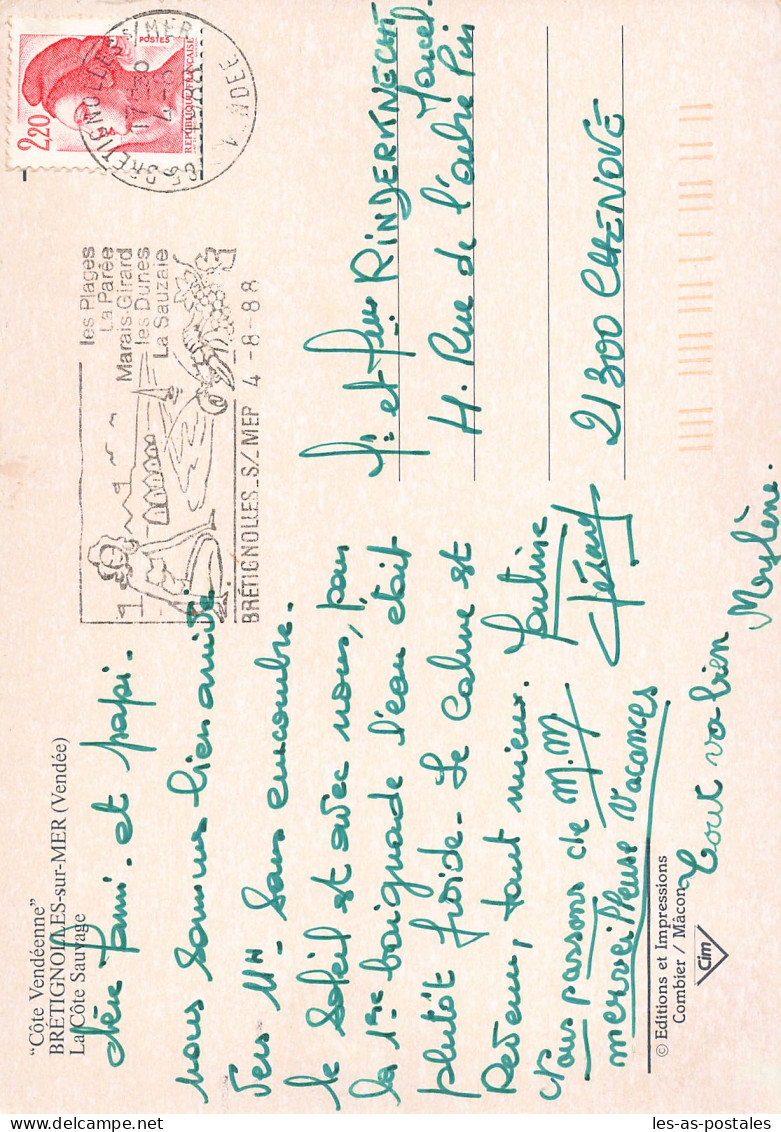 "Côte Vendéenne"
BRÉTIGNOLLES-sur-MER (Vendée)
La Côte Sauvage
et papi.
nous sommes bien arrivés
vers 11H - Sans encombre.
le soleil est avec nous, pour
la 1ère baignade l'eau était
plutôt froide. Le calme est
Revenu, tout mieux.
Nous passons de M.M
merveilleuse Vacances
Gérard
Tout va bien Mylène.
© Editions et Impressions
Combier / Mâcon
Cim
2,20
POSTES
REPUBLIQUE FRANÇAISE
85 BRETIGNOLLES S/MER
17-30
4-8
1988
VENDEE
les Plages
La Parée
Marais Girard
les Dunes
La Sauzaie
BRÉTIGNOLLES_S/MER 4-8-88
et RINDERKNECHT
Marcel
4. Rue de l'aubre Pin
21300 CHENOVE
les-as-postales